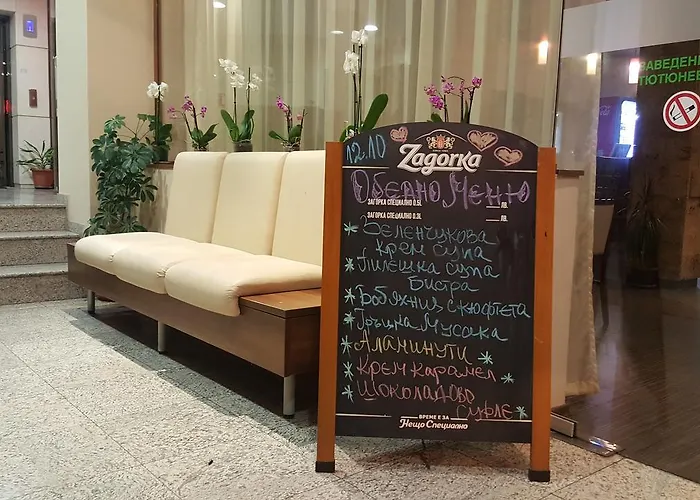 12.10
Zagorka
Обедно Меню
ЗАГОРКА СПЕЦИАЛНО 0.5L ЛВ.
ЗАГОРКА СПЕЦИАЛНО 0.3L ЛВ.
* Зеленчукова
Крем супа
* Пилешка супа
Бистра
* Боб яхния с кюфтета
* Гръцка Мусака
* Аламинути *
* Крем карамел *
* Шоколадово
суфле *
ВРЕМЕ Е ЗА
Нещо Специално
ЗАВЕДЕНИ
ТЮТЮНЕ